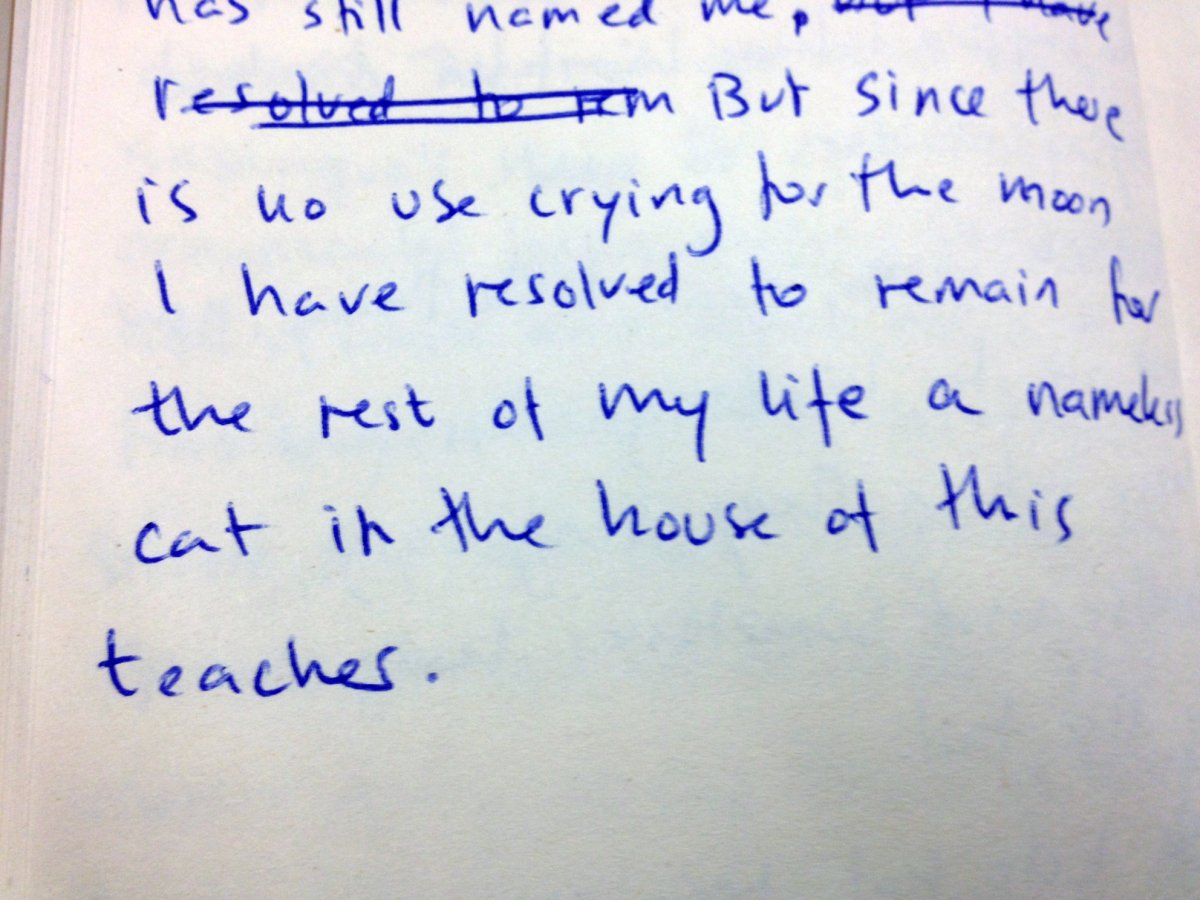 has still named me, but I have
resolved to rem But since there
is no use crying for the moon
I have resolved to remain for
the rest of my life a nameless
cat in the house of this
teacher.